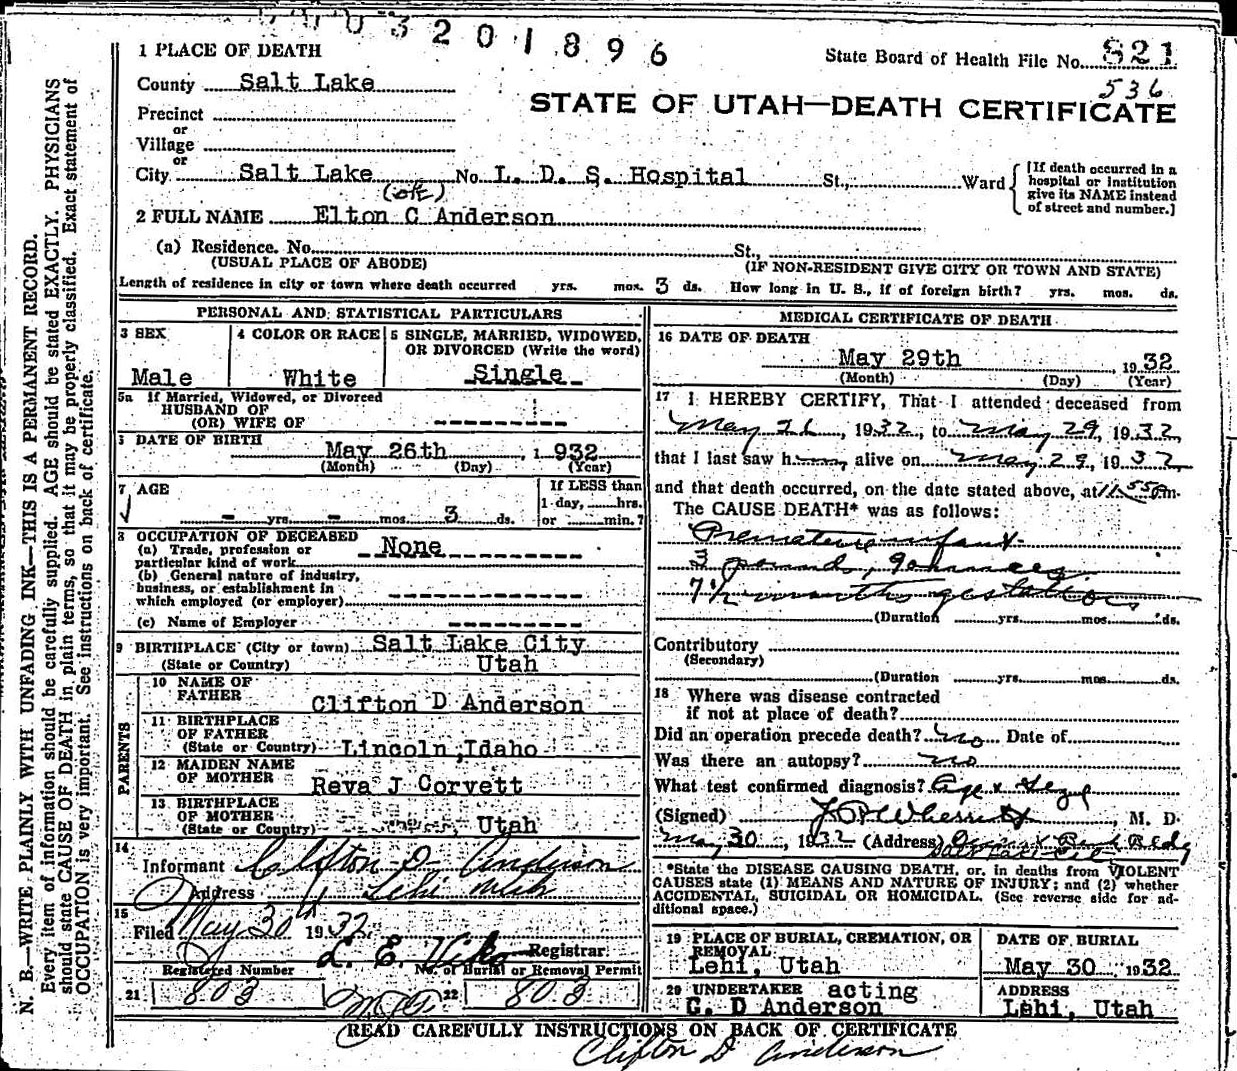 0 0 3 2 0 1 8 9 6
1 PLACE OF DEATH
State Board of Health File No. 821
536
County Salt Lake
STATE OF UTAH—DEATH CERTIFICATE
Precinct
or
Village
or
City Salt Lake No. L. D. S. Hospital St., Ward
[If death occurred in a hospital or institution give its NAME instead of street and number.]
(ok)
2 FULL NAME Elton C Anderson
(a) Residence. No. St.,
(USUAL PLACE OF ABODE) (IF NON-RESIDENT GIVE CITY OR TOWN AND STATE)
Length of residence in city or town where death occurred yrs. mos. 3 ds. How long in U. S., if of foreign birth? yrs. mos. ds.
PERSONAL AND STATISTICAL PARTICULARS
3 SEX
Male
4 COLOR OR RACE
White
5 SINGLE, MARRIED, WIDOWED, OR DIVORCED (Write the word)
Single
5a If Married, Widowed, or Divorced
HUSBAND OF
(OR) WIFE OF
DATE OF BIRTH
May 26th, 1932
(Month) (Day) (Year)
7 AGE
- yrs. - mos. 3 ds.
If LESS than
1 day, hrs.
or min.?
8 OCCUPATION OF DECEASED
(a) Trade, profession or particular kind of work None
(b) General nature of industry, business, or establishment in which employed (or employer)
(c) Name of Employer
9 BIRTHPLACE (City or town) Salt Lake City
(State or Country) Utah
PARENTS
10 NAME OF FATHER
Clifton D Anderson
11 BIRTHPLACE OF FATHER
(State or Country) Lincoln, Idaho
12 MAIDEN NAME OF MOTHER
Reva J Corvett
13 BIRTHPLACE OF MOTHER
(State or Country) Utah
14
Informant Clifton D Anderson
Address Lehi Utah
15
Filed May 30th 1932
L. E. Viko Registrar
Registered Number No. of Burial or Removal Permit
21 803 22 803
MEDICAL CERTIFICATE OF DEATH
16 DATE OF DEATH
May 29th 1932
(Month) (Day) (Year)
17 I HEREBY CERTIFY, That I attended deceased from
May 26, 1932, to May 29, 1932,
that I last saw him alive on May 29, 1932
and that death occurred, on the date stated above, at 11:55 Pm.
The CAUSE DEATH* was as follows:
Premature infant
3 pounds, 9 ounces
7 1/2 months gestation
(Duration yrs. mos. ds.
Contributory
(Secondary)
(Duration yrs. mos. ds.
18 Where was disease contracted
if not at place of death?
Did an operation precede death? No Date of
Was there an autopsy? no
What test confirmed diagnosis? Age &
(Signed) M. D.
May 30, 1932 (Address)
*State the DISEASE CAUSING DEATH, or, in deaths from VIOLENT
CAUSES state (1) MEANS AND NATURE OF INJURY; and (2) whether
ACCIDENTAL, SUICIDAL OR HOMICIDAL. (See reverse side for ad-
ditional space.)
19 PLACE OF BURIAL, CREMATION, OR REMOVAL
Lehi, Utah
DATE OF BURIAL
May 30 1932
20 UNDERTAKER acting
C. D Anderson
ADDRESS
Lehi, Utah
READ CAREFULLY INSTRUCTIONS ON BACK OF CERTIFICATE
Clifton D Anderson
N. B.—WRITE PLAINLY WITH UNFADING INK—THIS IS A PERMANENT RECORD.
Every item of information should be carefully supplied. AGE should be stated EXACTLY. PHYSICIANS
should state CAUSE OF DEATH in plain terms, so that it may be properly classified. Exact statement of
OCCUPATION is very important. See instructions on back of certificate.